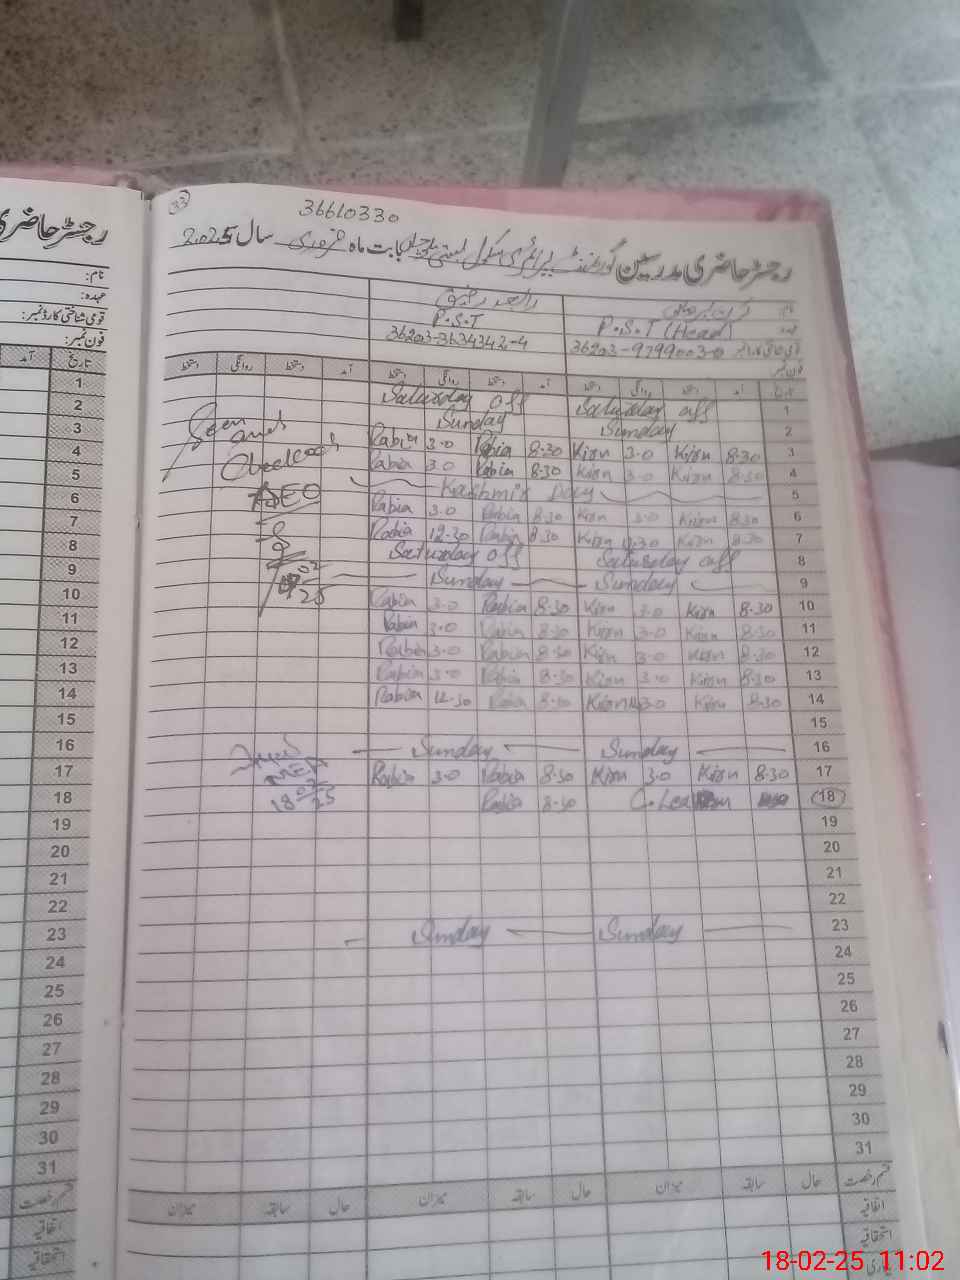 33
36610330
رجسٹر حاضری مدرسین گورنمنٹ پرائمری سکول بستی بابت ماہ فروری سال 2025
نام
P.S.T (Head) P.S.T
36203-9799003-0 36203-3634342-4
فون نمبر
تاریخ آمد دستخط روانگی دستخط آمد دستخط روانگی دستخط آمد دستخط روانگی دستخط
Saturday off Saturday off 1
Sunday Sunday 2
Rabia 3.0 Rabia 8.30 Kiran 3.0 Kiran 8.30 3
Rabia 3.0 Rabia 8.30 Kiran 3.0 Kiran 8.30 4
Kashmir Day 5
Rabia 3.0 Rabia 8.30 Kiran 3.0 Kiran 8.30 6
Rabia 12.30 Rabia 8.30 Kiran 12.30 Kiran 8.30 7
Saturday off Saturday off 8
Sunday Sunday 9
Rabia 3.0 Rabia 8.30 Kiran 3.0 Kiran 8.30 10
Rabia 3.0 Rabia 8.30 Kiran 3.0 Kiran 8.30 11
Rabia 3.0 Rabia 8.30 Kiran 3.0 Kiran 8.30 12
Rabia 3.0 Rabia 8.30 Kiran 3.0 Kiran 8.30 13
Rabia 12.30 Rabia 8.30 Kiran 12.30 Kiran 8.30 14
15
Sunday Sunday 16
Rabia 3.0 Rabia 8.30 Kiran 3.0 Kiran 8.30 17
Rabia 8.30 C.Lea 18
19
20
21
22
Sunday Sunday 23
24
25
26
27
28
29
30
31
قسم رخصت حال سابقہ میزان حال سابقہ میزان حال سابقہ میزان
اتفاقیہ
استحقاقیہ
بیماری
Seen
and
Checked
AEO
02
25
MEA
18 02
25
رجسٹر حاضری
نام:
عہدہ:
قومی شناختی کارڈ نمبر:
فون نمبر:
تاریخ آمد
1
2
3
4
5
6
7
8
9
10
11
12
13
14
15
16
17
18
19
20
21
22
23
24
25
26
27
28
29
30
31
قسم رخصت
اتفاقیہ
استحقاقیہ
18-02-25 11:02